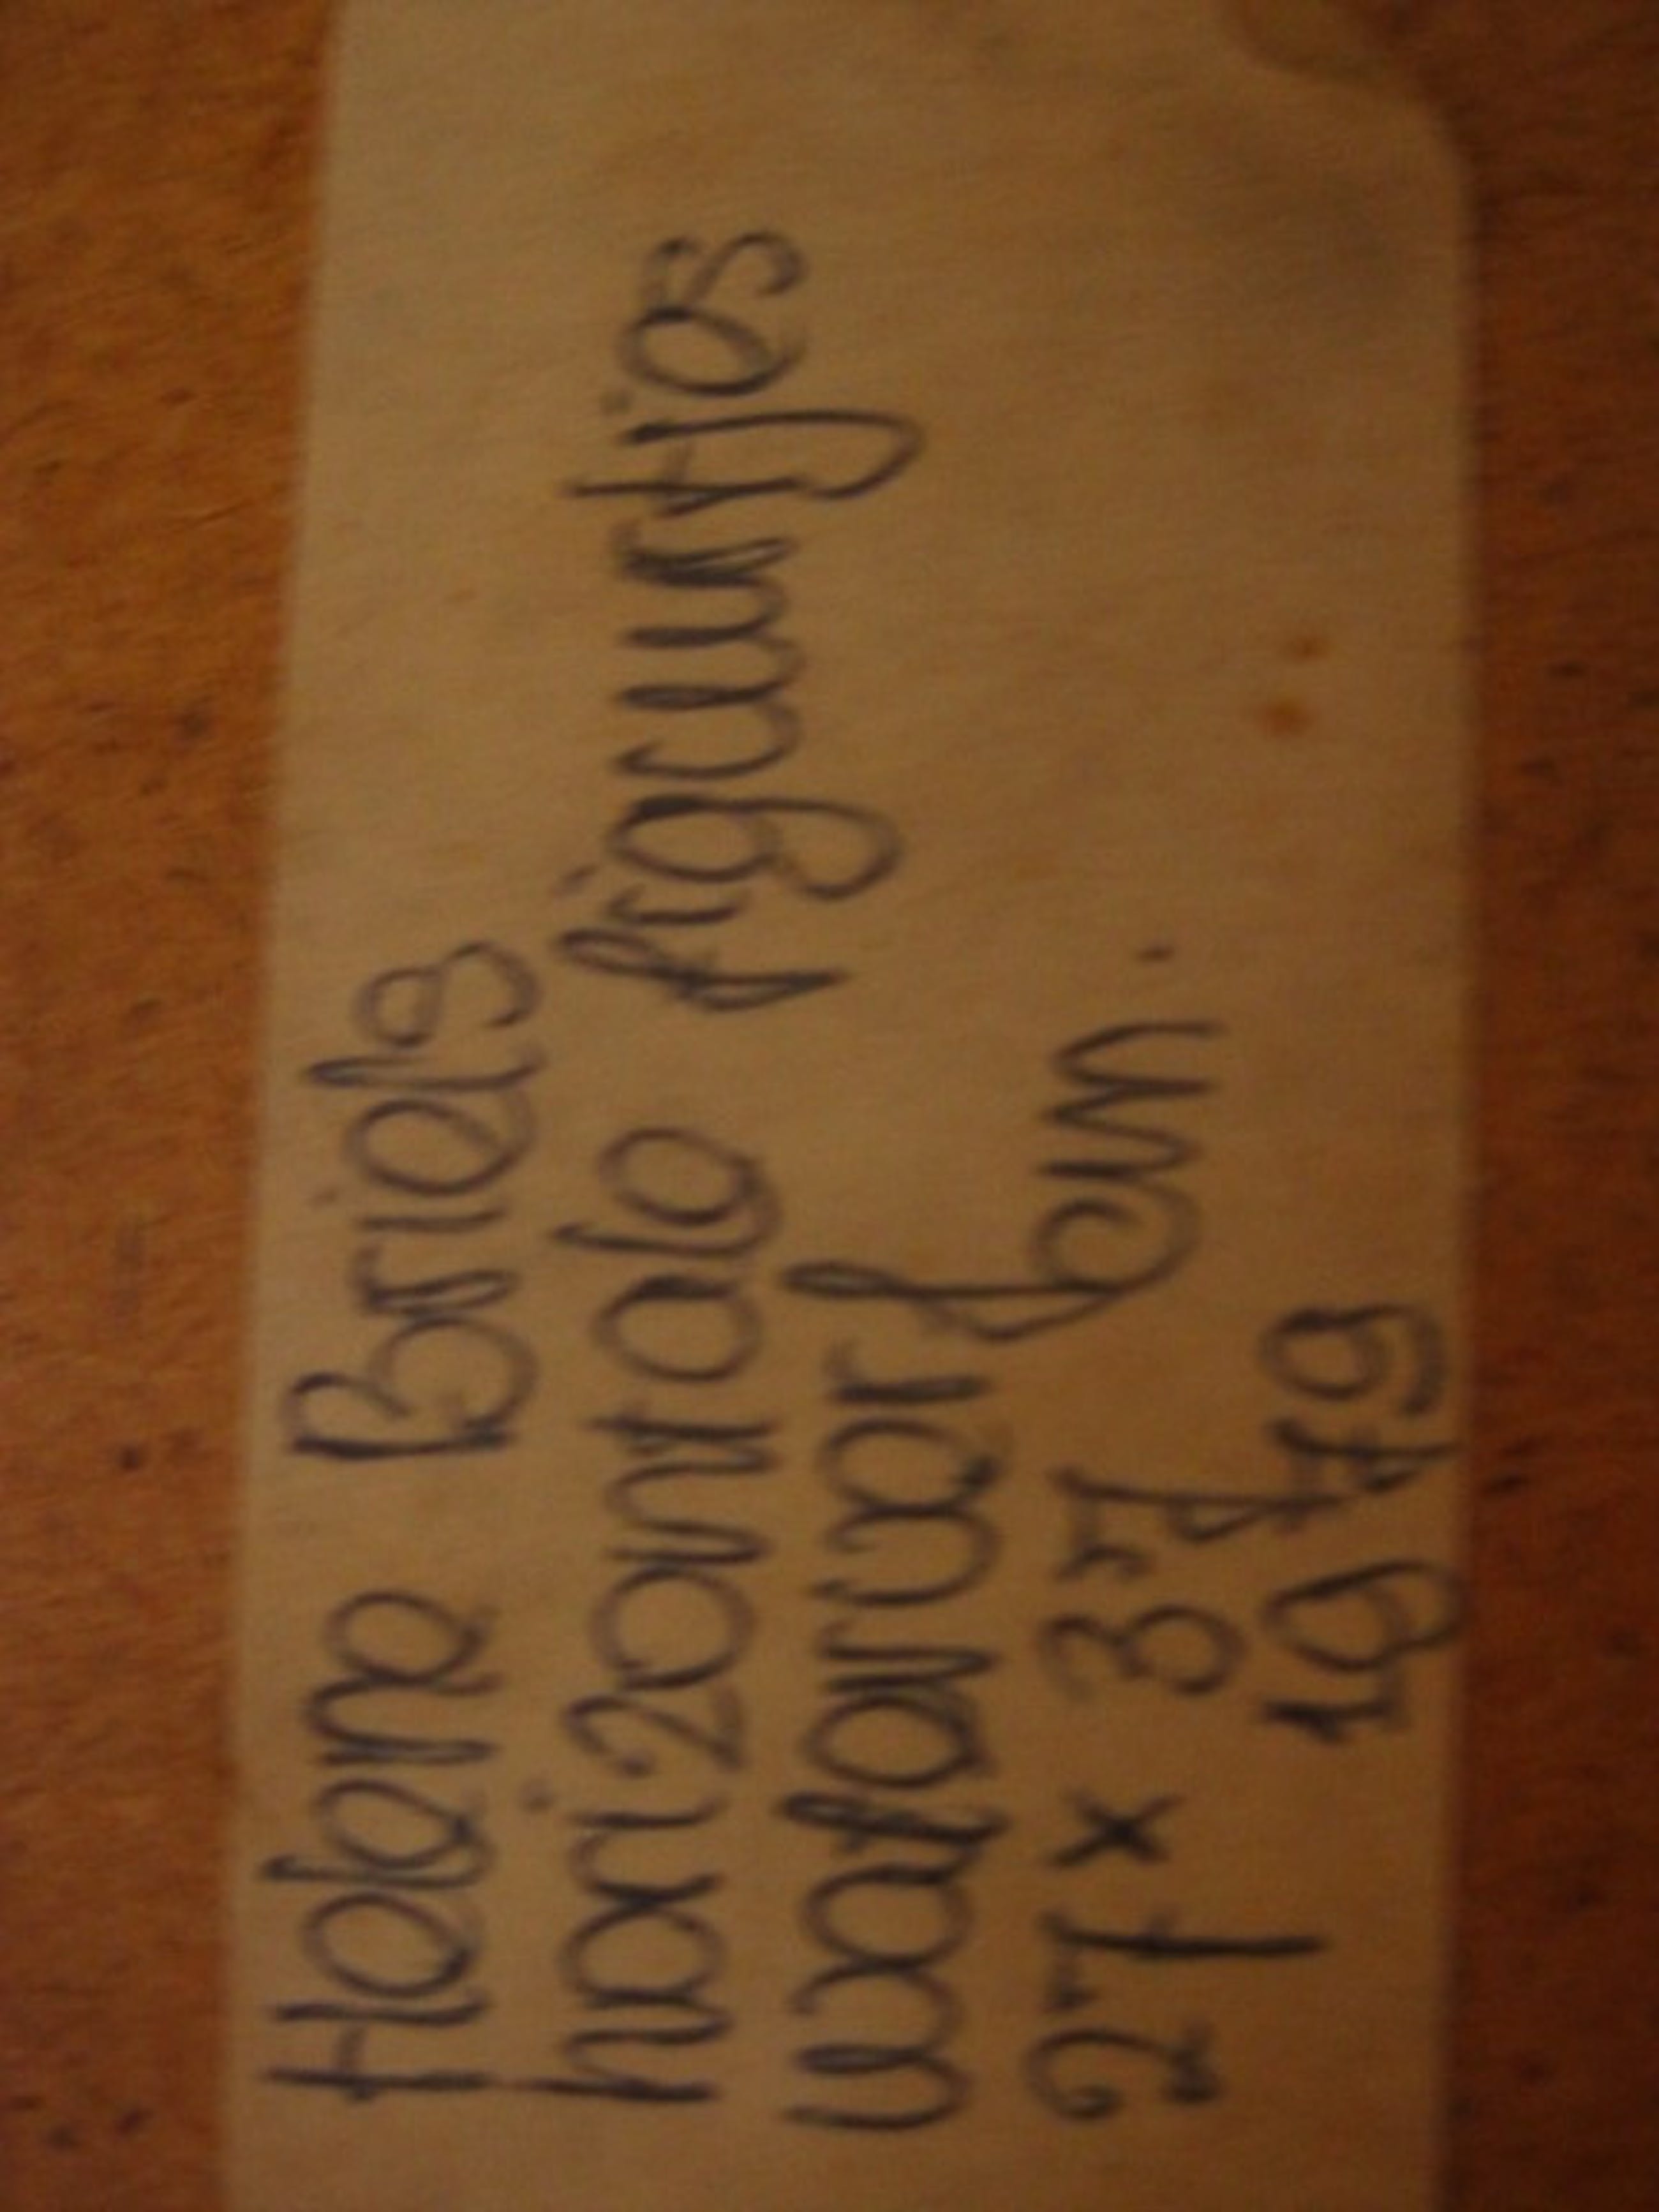 Helene Briels
horizontale figuurtjes
waterverf
27 x 37 cm.
1979